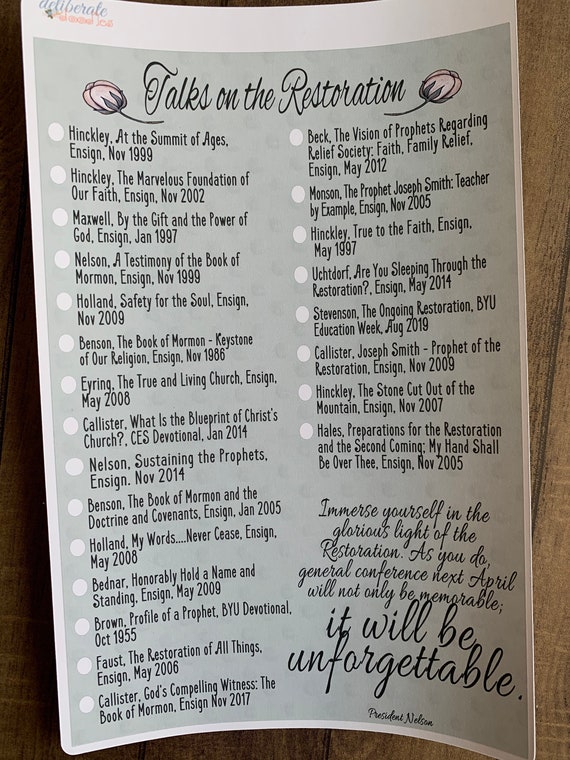 deliberate
Talks on the Restoration
Hinckley, At the Summit of Ages,
Ensign, Nov 1999
Hinckley, The Marvelous Foundation of
Our Faith, Ensign, Nov 2002
Maxwell, By the Gift and the Power of
God, Ensign, Jan 1997
Nelson, A Testimony of the Book of
Mormon, Ensign, Nov 1999
Holland, Safety for the Soul, Ensign,
Nov 2009
Benson, The Book of Mormon - Keystone
of Our Religion, Ensign, Nov 1986
Eyring, The True and Living Church, Ensign,
May 2008
Callister, What Is the Blueprint of Christ's
Church?, CES Devotional, Jan 2014
Nelson, Sustaining the Prophets,
Ensign. Nov 2014
Benson, The Book of Mormon and the
Doctrine and Covenants, Ensign, Jan 2005
Holland, My Words....Never Cease, Ensign,
May 2008
Bednar, Honorably Hold a Name and
Standing, Ensign, May 2009
Brown, Profile of a Prophet, BYU Devotional,
Oct 1955
Faust, The Restoration of All Things,
Ensign, May 2006
Callister, God's Compelling Witness: The
Book of Mormon, Ensign Nov 2017
Beck, The Vision of Prophets Regarding
Relief Society: Faith, Family Relief,
Ensign, May 2012
Monson, The Prophet Joseph Smith: Teacher
by Example, Ensign, Nov 2005
Hinckley, True to the Faith, Ensign,
May 1997
Uchtdorf, Are You Sleeping Through the
Restoration?, Ensign, May 2014
Stevenson, The Ongoing Restoration, BYU
Education Week, Aug 2019
Callister, Joseph Smith - Prophet of the
Restoration, Ensign, Nov 2009
Hinckley, The Stone Cut Out of the
Mountain, Ensign, Nov 2007
Hales, Preparations for the Restoration
and the Second Coming; My Hand Shall
Be Over Thee, Ensign, Nov 2005
Immerse yourself in the
glorious light of the
Restoration. As you do,
general conference next April
will not only be memorable;
it will be
unforgettable.
President Nelson